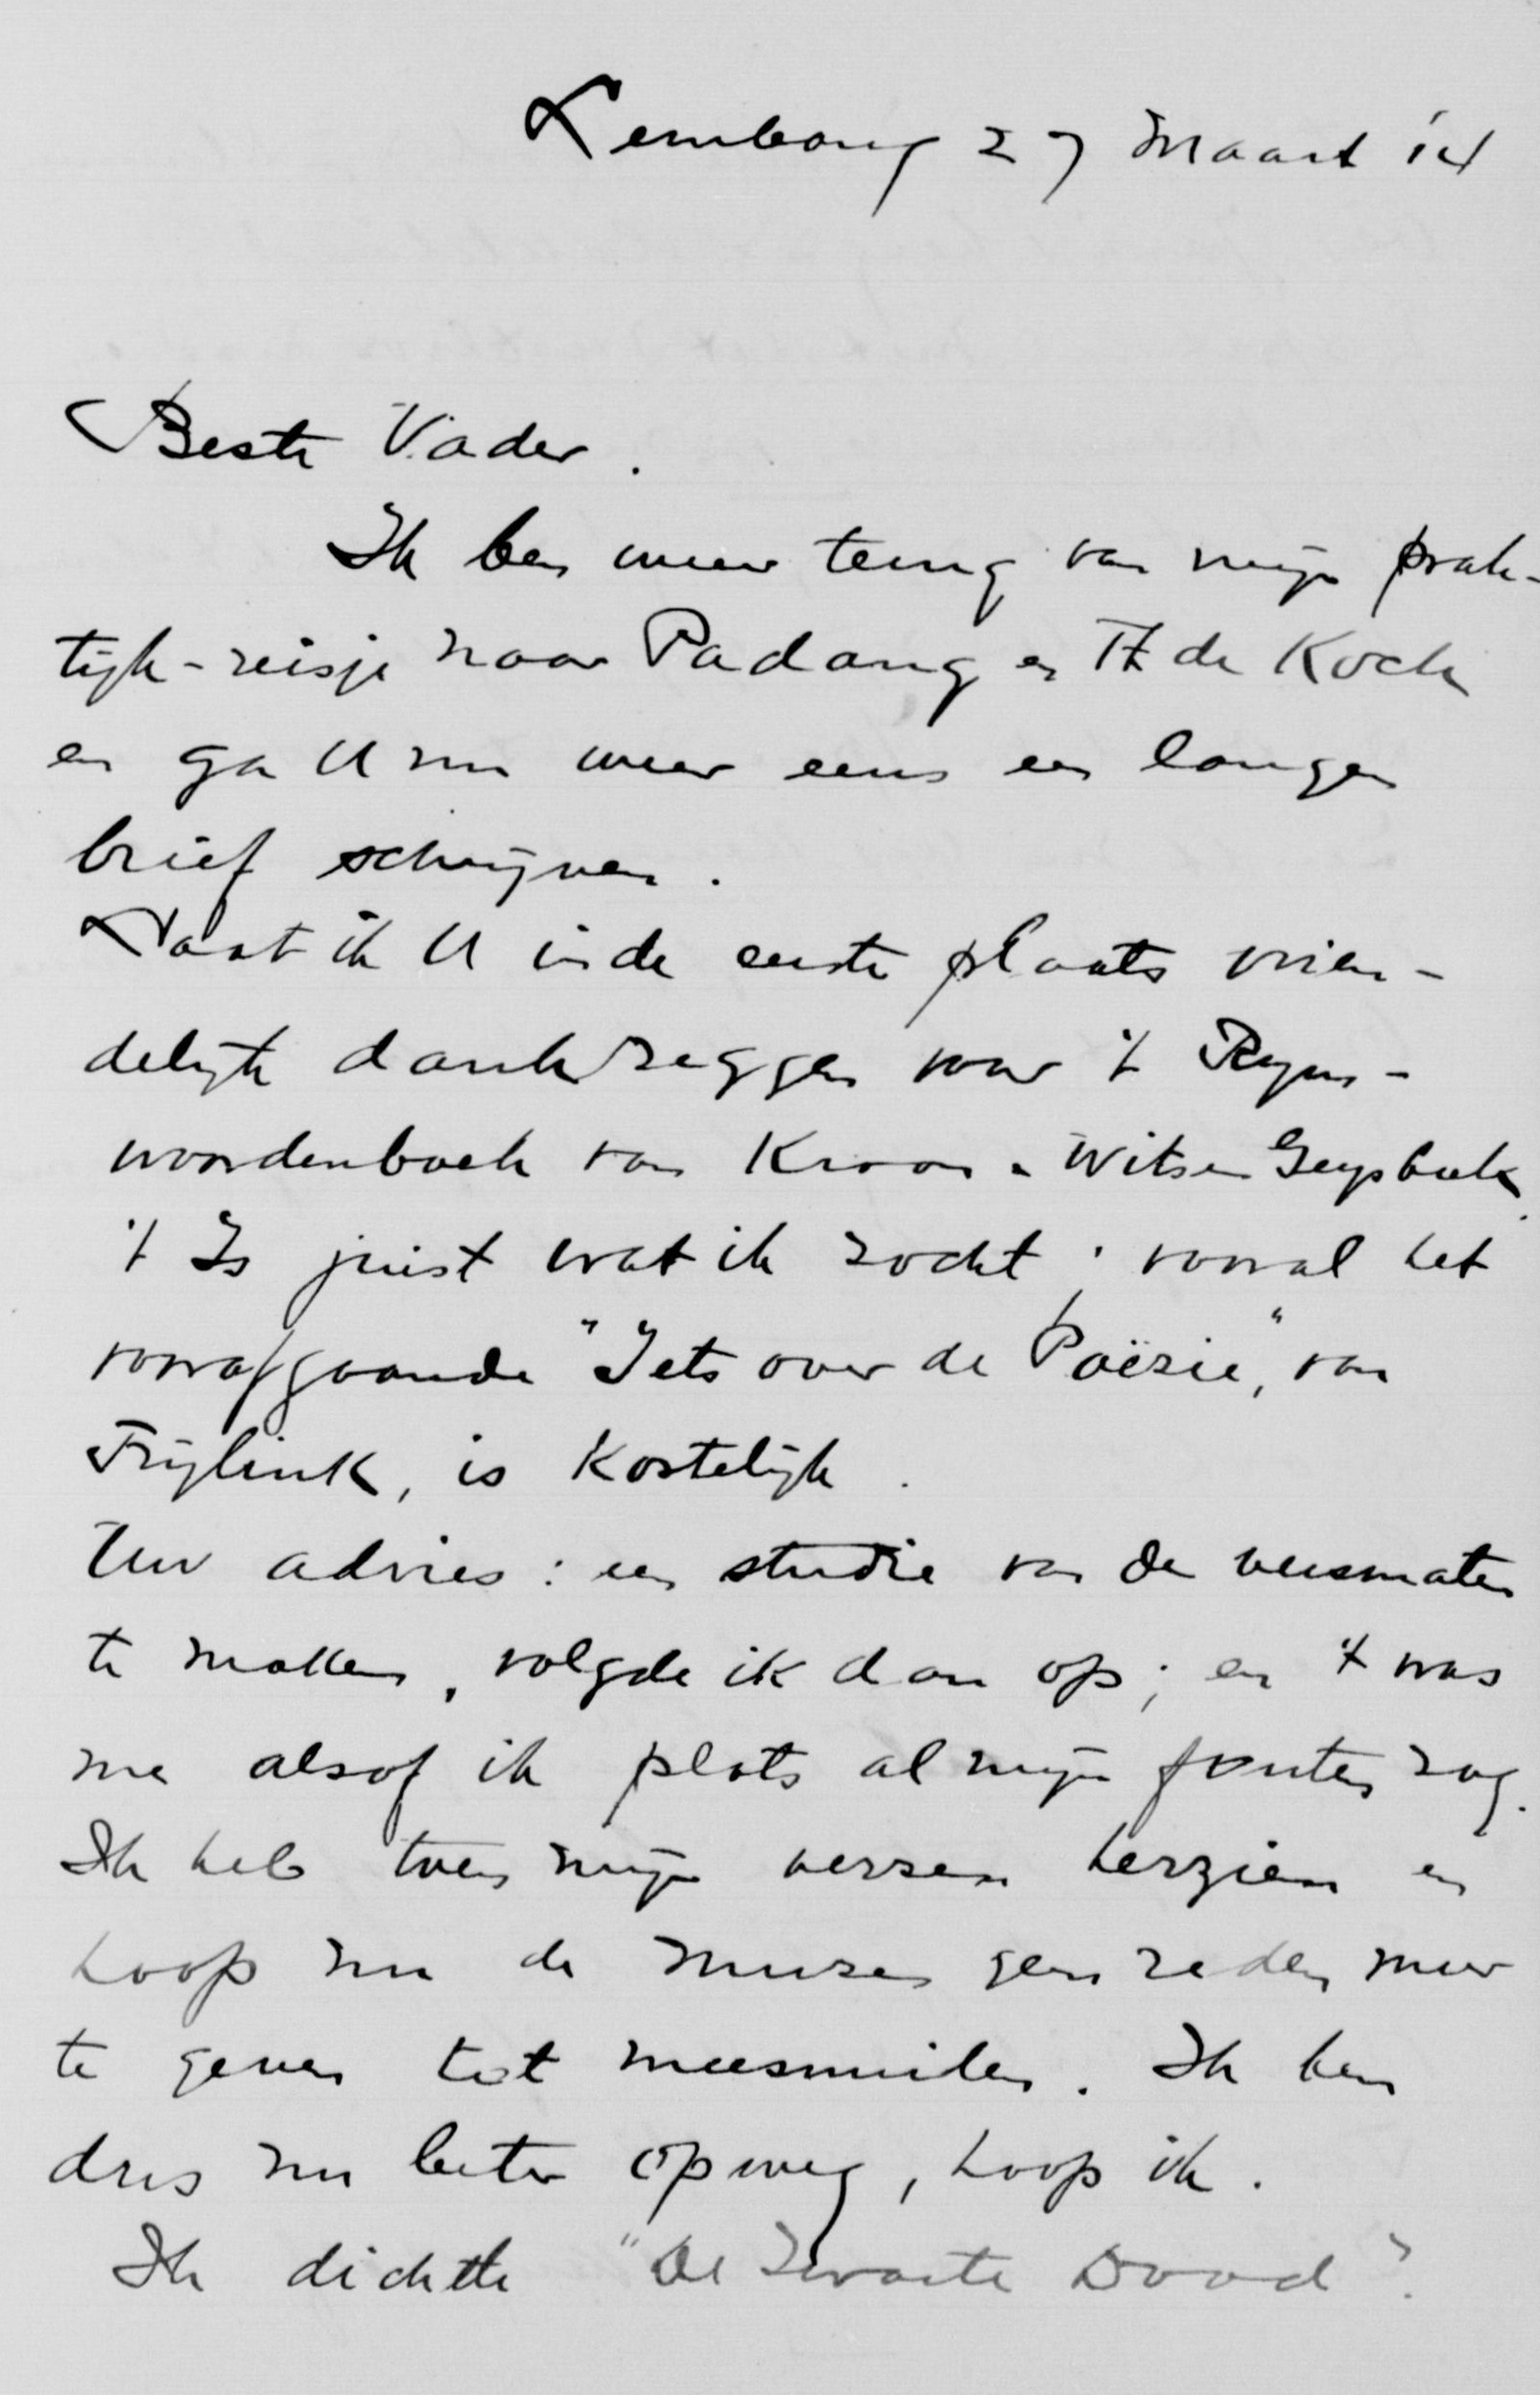 Lembang 27 Maart '14
Beste Vader.
Ik ben weer terug van mijn prak-
tijk-reisje naar Padang en Ft de Kock
en ga U nu weer eens een langen
brief schrijven.
Laat ik U in de eerste plaats vrien-
delijk dankzeggen voor 't Rijm-
woordenboek van Kroon - Witsen Geysbeek.
't Is juist wat ik zocht; vooral het
voorafgaande "Iets over de Poëzie", van
Frijlink, is kostelijk.
Uw advies: een studie van de versmaten
te maken, volgde ik dan op; en 't was
me alsof ik plots al mijn fouten zag.
Ik heb toen mijn verzen herzien en
hoop nu de muzen geen reden meer
te geven tot meesmuilen. Ik ben
dus nu beter op weg, hoop ik.
Ik dichtte "De Zwarte Dood".